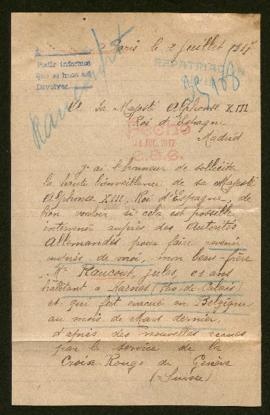 Paris le 2 Juillet 1917
Pedir informes
que se hace así
Devolver
REPATRIACION
Raucourt
A Sa Majesté Alphonse XIII
Roi d'Espagne
Madrid
JUL. 1917
J'ai l'honneur de solliciter
la haute bienveillance de sa Majesté
Alphonse XIII, Roi d'Espagne, de
bien vouloir si cela est possible
intervenir auprès des Autorités
Allemandes pour faire revenir
auprès de moi, mon beau-frère
Mr Raucourt, Jules, 61 ans
habitant à Harnes (Pas-de-Calais)
et qui fut évacué en Belgique
au mois de Mars dernier,
d'après des nouvelles reçues
par le service de la
Croix-Rouge de Genève
(Suisse)